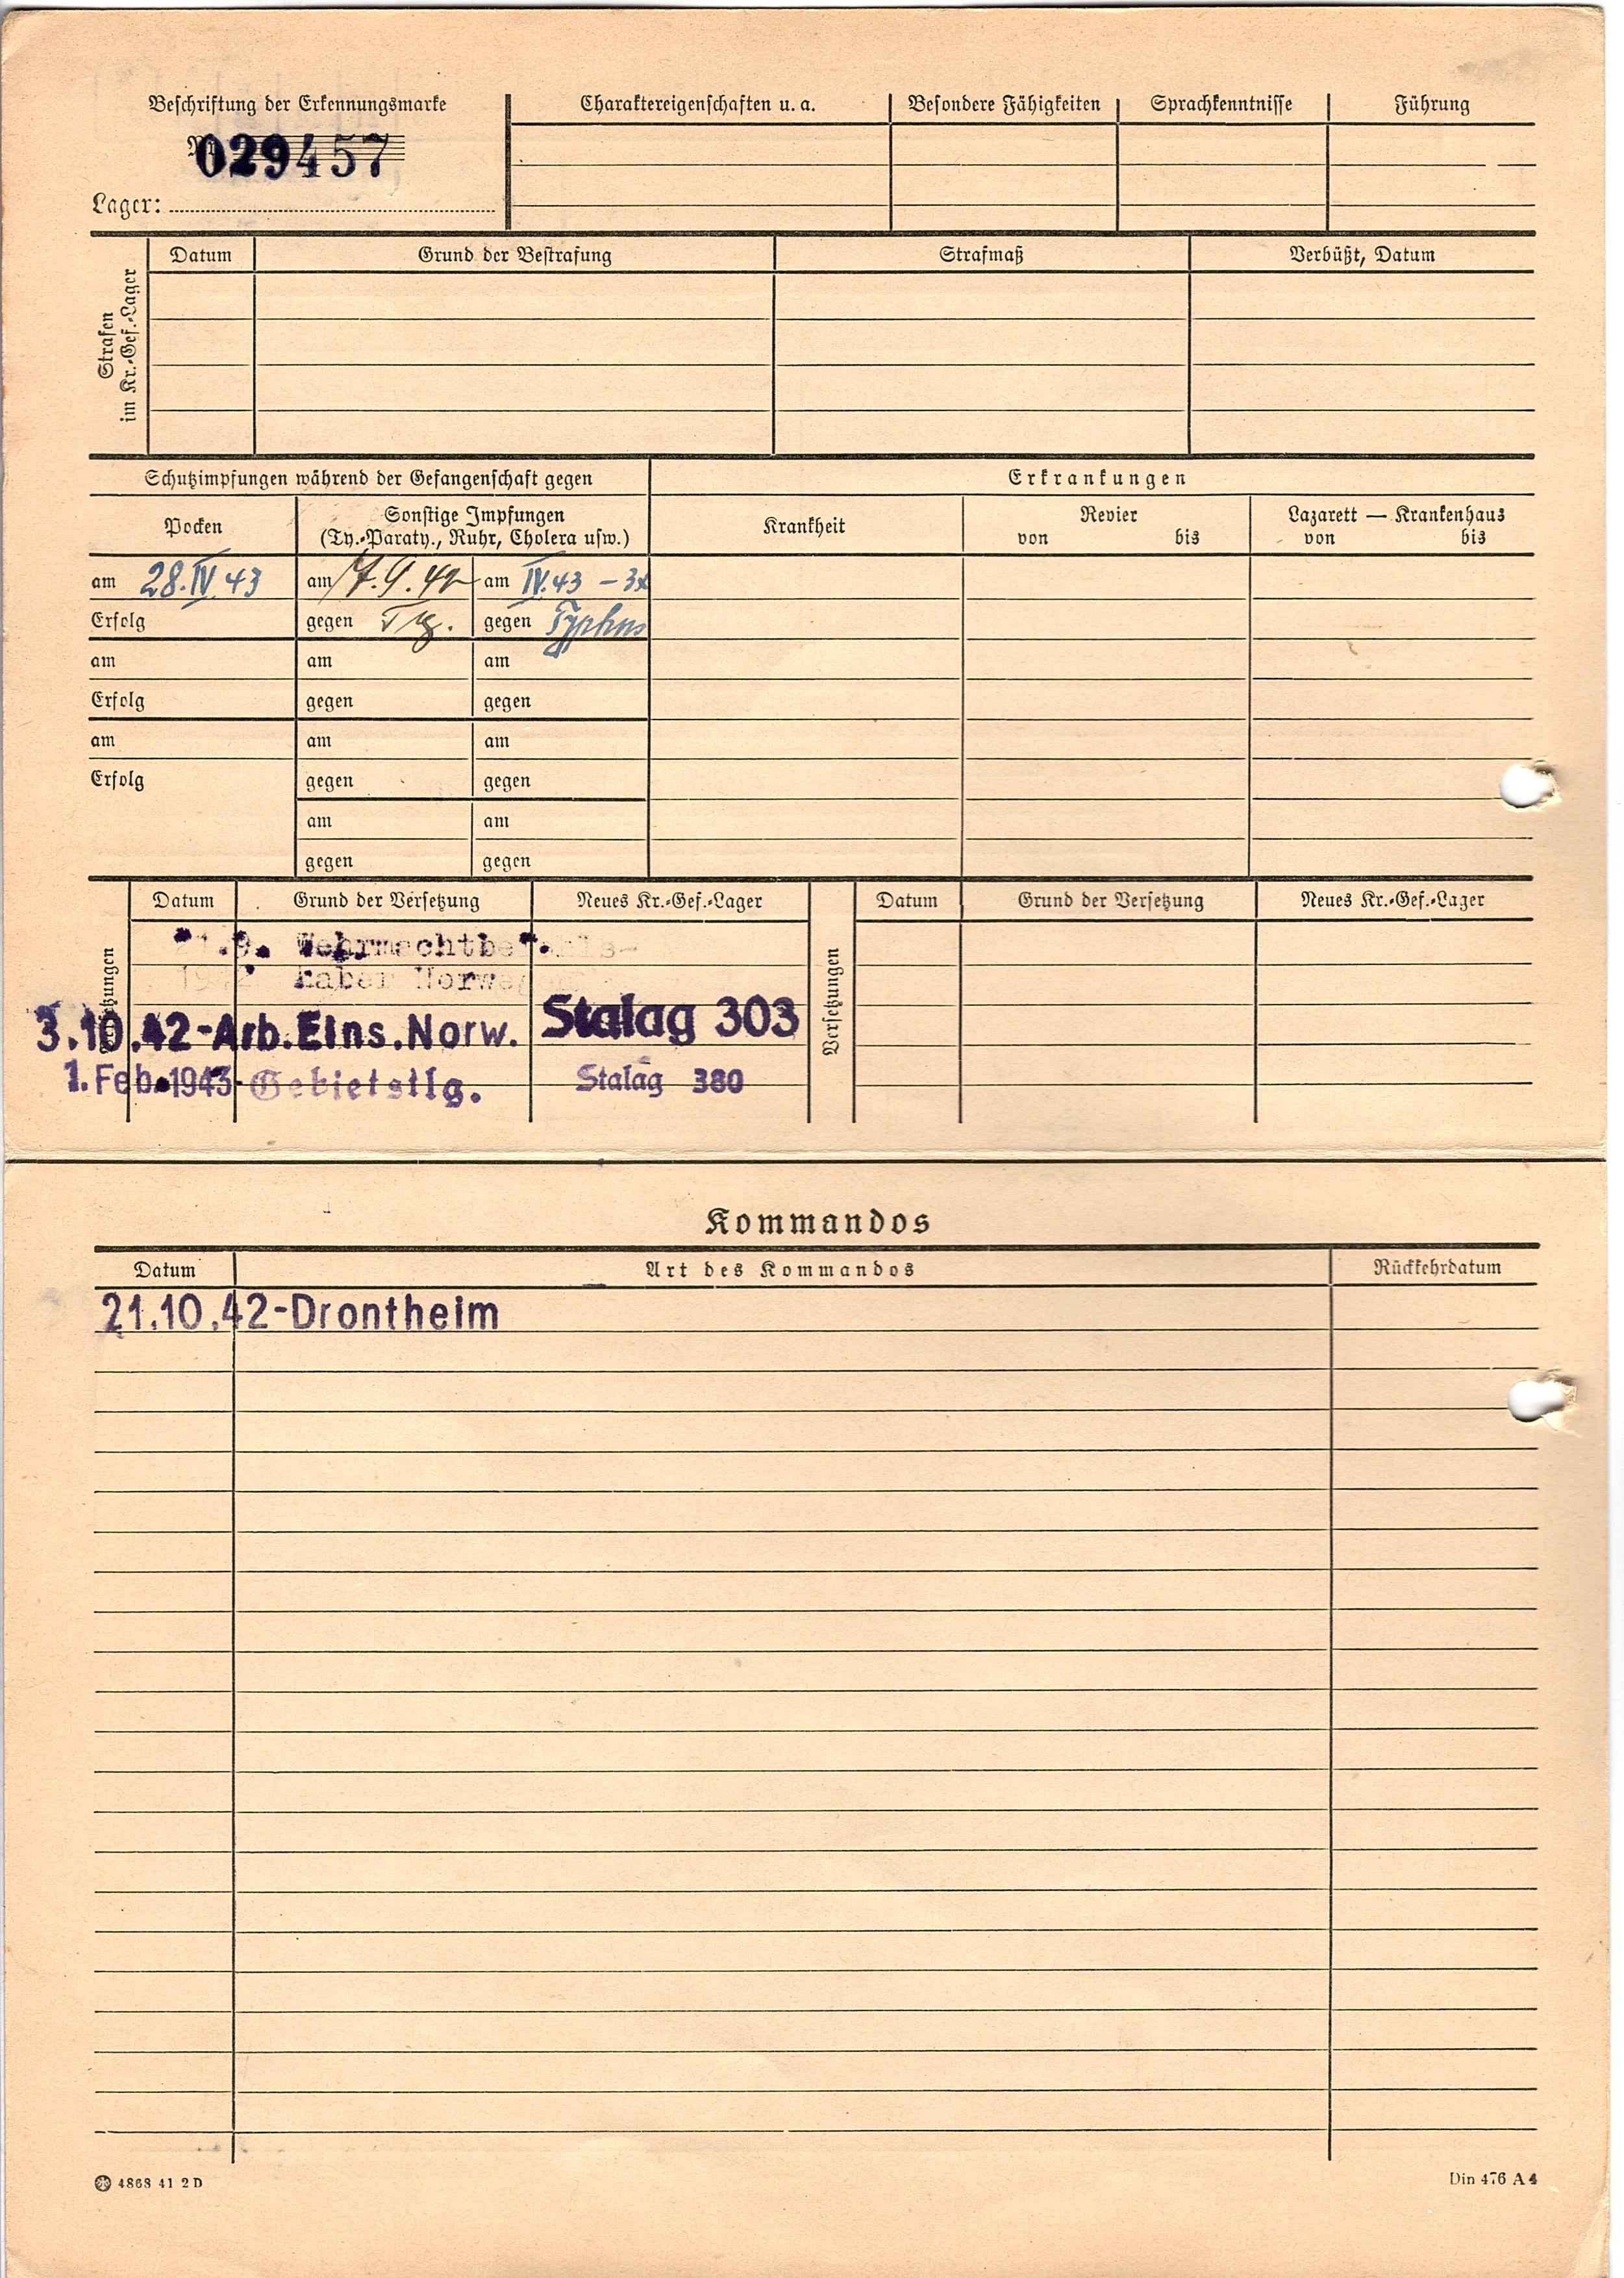 Beschriftung der Erkennungsmarke
Charaktereigenschaften u. a.
Besondere Fähigkeiten
Sprachkenntnisse
Führung
029457
Lager:
Strafen
im Kr.-Gef.-Lager
Datum
Grund der Bestrafung
Strafmaß
Verbüßt, Datum
Schutzimpfungen während der Gefangenschaft gegen
Erkrankungen
Pocken
Sonstige Impfungen
(Ty.-Paraty., Ruhr, Cholera usw.)
Krankheit
Revier
von bis
Lazarett — Krankenhaus
von bis
am 28.IV.43
am 9.42
am IV.43 - 3x
Erfolg
gegen
gegen Typhus
am
am
am
Erfolg
gegen
gegen
am
am
am
Erfolg
gegen
gegen
am
am
gegen
gegen
Datum
Grund der Versetzung
Neues Kr.-Gef.-Lager
Versetzungen
Datum
Grund der Versetzung
Neues Kr.-Gef.-Lager
Versetzungen
3.10.42-Arb.Eins.Norw. Stalag 303
1. Feb. 1943 - Gebietstlg. Stalag 380
Kommandos
Datum
Art des Kommandos
Rückkehrdatum
21.10.42-Drontheim
4868 41 2 D
Din 476 A 4